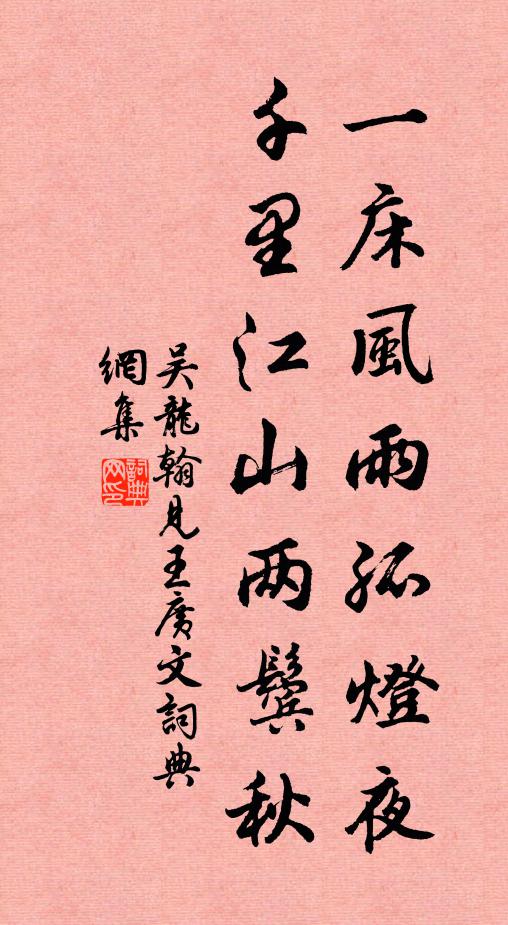 一床風雨孤燈夜
千里江山两鬓秋
吴龍翰見王廣文詞典
網集
詞典网印